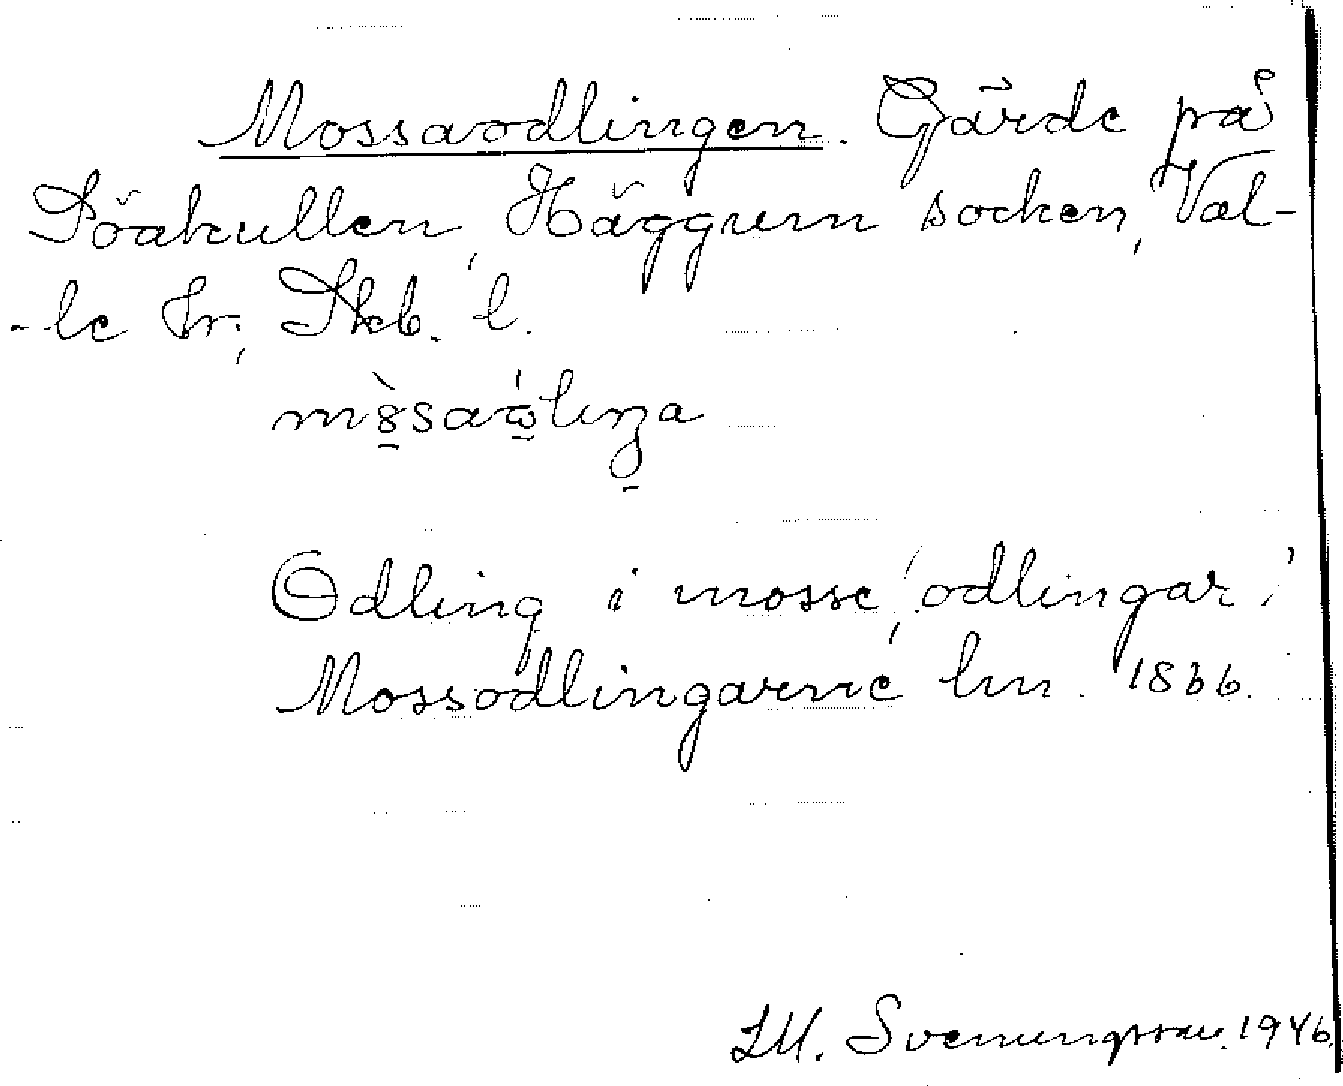 Mossaodlingen. Gärde på
Söakullen, Häggum socken, Val-
-le hr, Skb. l.
Odling i mosse, 'odlingar'.
Mossodlingarne lm. 1866.
Svenungsson. 1946.